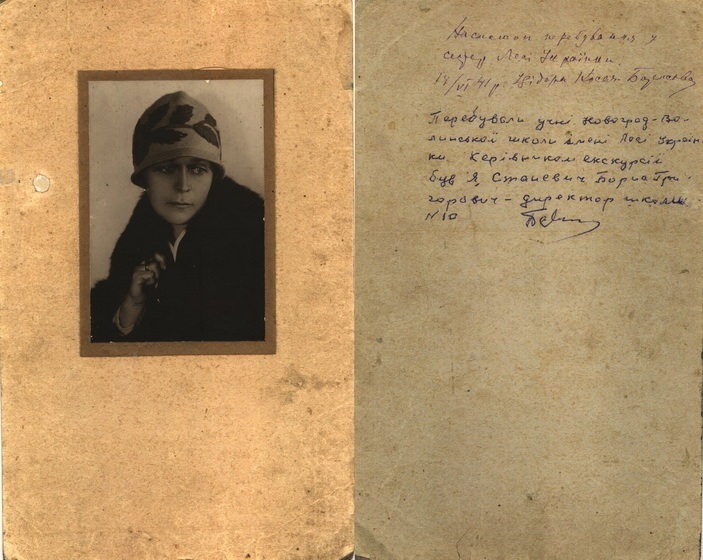 На спомин перебування у
сестри Лесі Українки.
14/VI 41 р. Ізідора Косач-Борисова
Перебували учні Новоград-Во-
линської школи імені Лесі Українк
ки. Керівником екскурсій
був Я Станевич Борис Гри-
горович – директор школи
№10